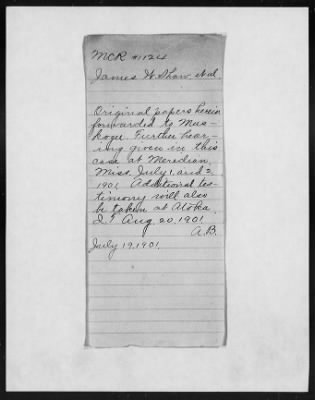 MCR #1124
James W. Shaw, et al
Original papers herein
forwarded to Mus-
kogee. Further hear-
ing given in this
case at Meredian,
Miss. July 1, and 2,
1901. Additional tes-
timony will also
be taken at Atoka,
I.T. Aug. 20, 1901.
A.B.
July 19, 1901.